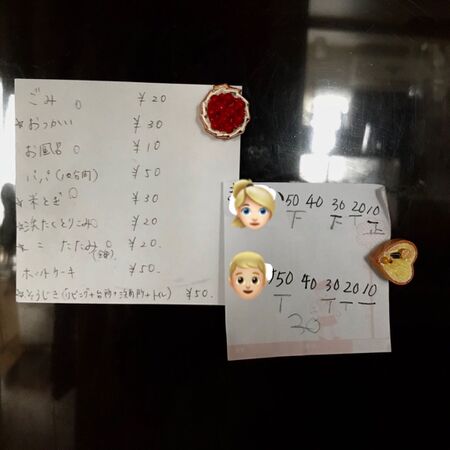 ごみ ¥20
☆おつかい ¥30
お風呂 ¥10
パパ(10分間) ¥50
☆米とぎ ¥30
☆洗たくとりこみ ¥20
☆〃 たたみ ¥20.
(全部)
ホットケーキ ¥50.
☆そうじき(リビング+台所+洗面所+トイレ) ¥50.
50 40 30 20 10
下 下 T 正
50 40 30 20 10
T T T 一
20